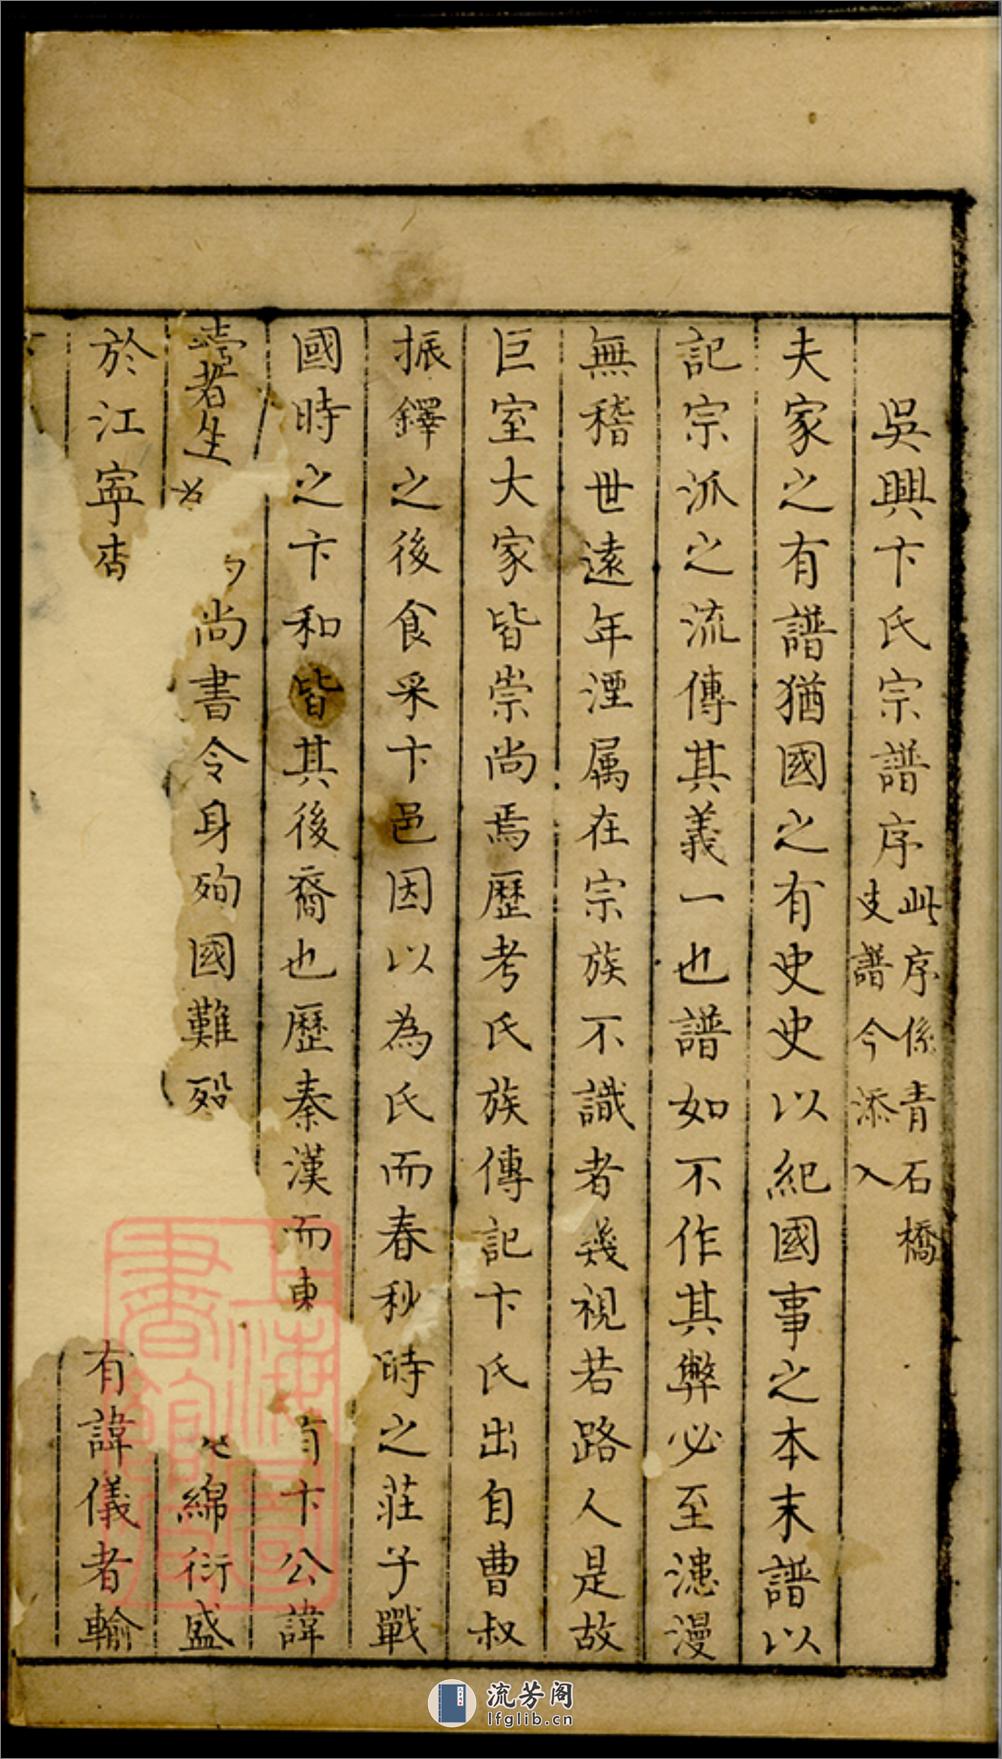 吳興卞氏宗譜序此序係青石橋支譜今添入
夫家之有譜猶國之有史史以紀國事之本末譜以
記宗派之流傳其義一也譜如不作其弊必至漶漫
無稽世遠年湮属在宗族不識者幾視若路人是故
巨室大家皆崇尚焉歷考氏族傳記卞氏出自曹叔
振鐸之後食采卞邑因以為氏而春秋時之莊子戰
國時之卞和皆其後裔也歷秦漢而東有卞公諱
壼者生尚書令身殉國難綿衍盛
於江寧有諱儀者輸
上海圖書館
流芳阁
lfglib.cn